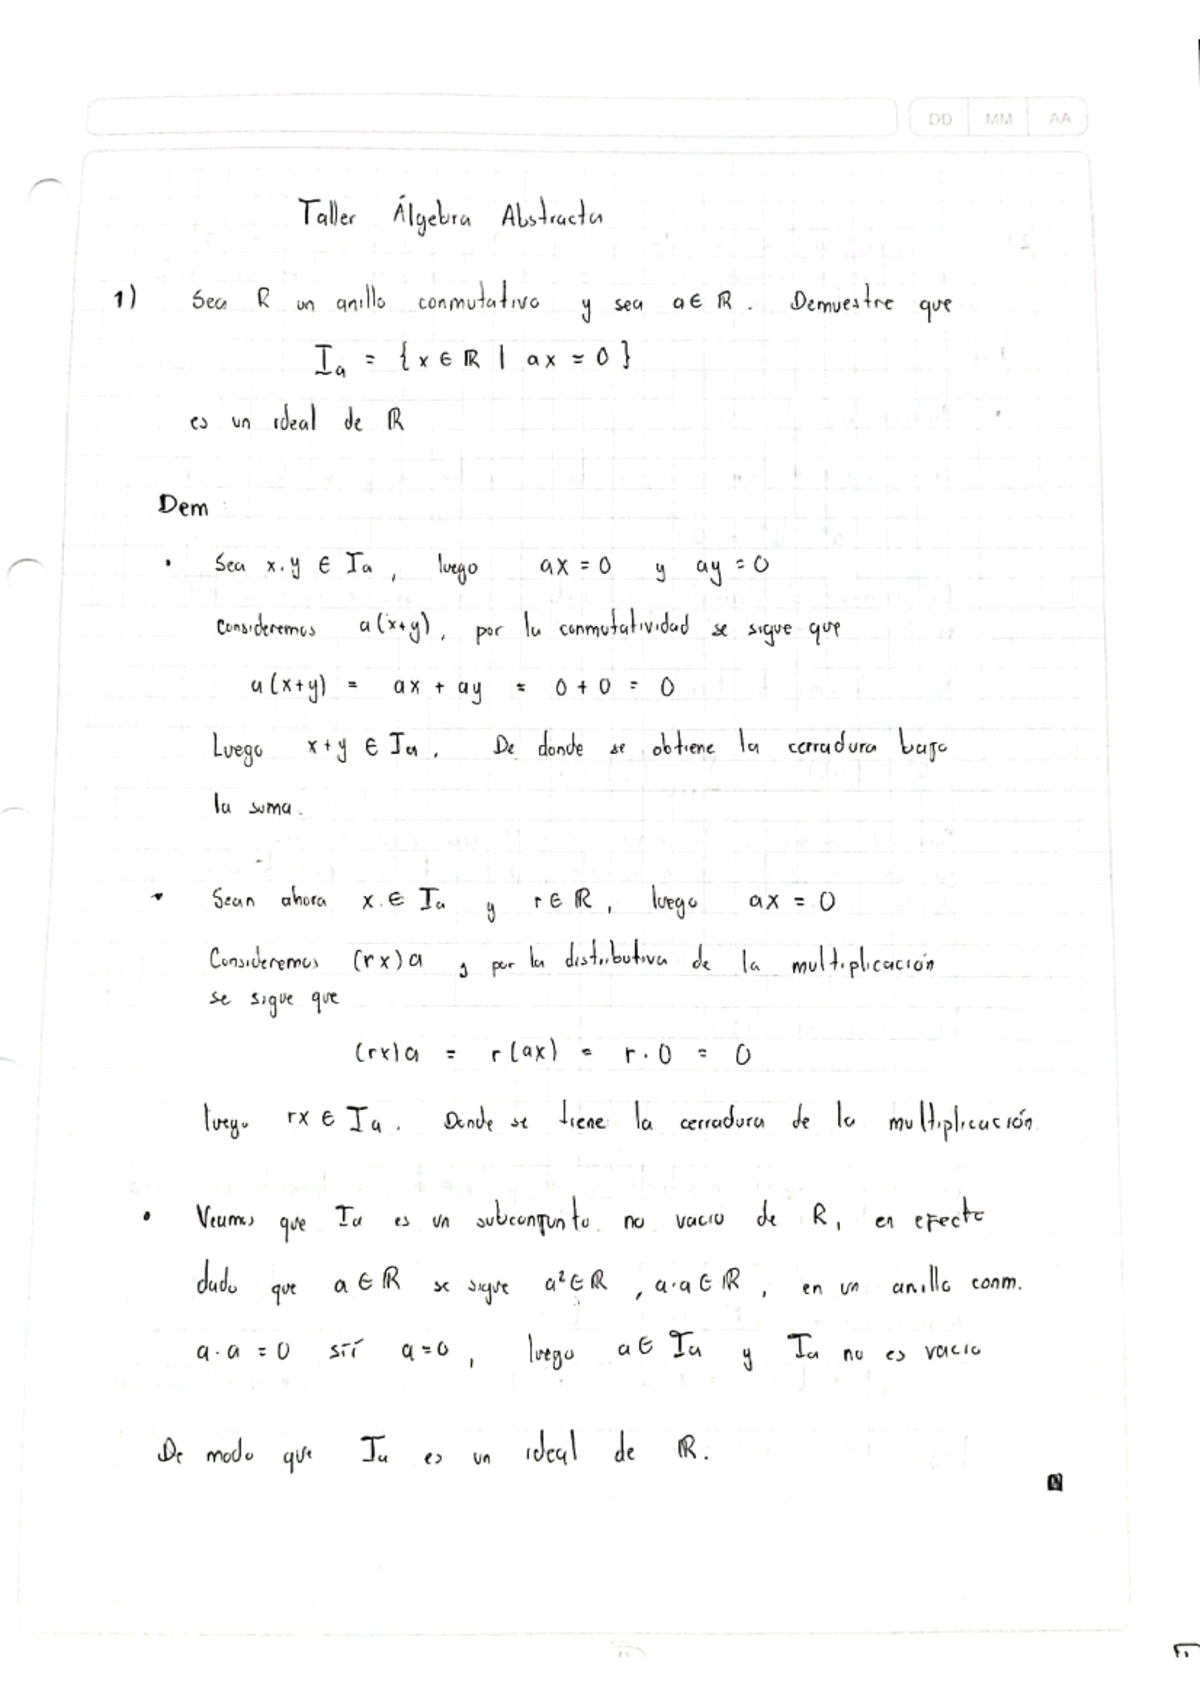 DD MM AA
Taller Álgebra Abstracta
1) Sea R un anillo conmutativo y sea a ∈ R. Demuestre que
I_a = {x ∈ R | ax = 0}
es un ideal de R
Dem:
• Sea x.y ∈ I_a, luego ax = 0 y ay = 0
Consideremos a(x+y), por la conmutatividad se sigue que
a(x+y) = ax + ay = 0 + 0 = 0
Luego x+y ∈ I_a. De donde se obtiene la cerradura bajo
la suma.
• Sean ahora x ∈ I_a y r ∈ R, luego ax = 0
Consideremos (rx)a y por la distributiva de la multiplicación
se sigue que
(rx)a = r(ax) = r·0 = 0
luego rx ∈ I_a. Donde se tiene la cerradura de la multiplicación.
• Veamos que I_a es un subconjunto no vacio de R, en efecto
dado que a ∈ R se sigue a² ∈ R, a·a ∈ R, en un anillo conm.
a·a = 0 sii a=0, luego a ∈ I_a y I_a no es vacio
De modo que I_a es un ideal de R.